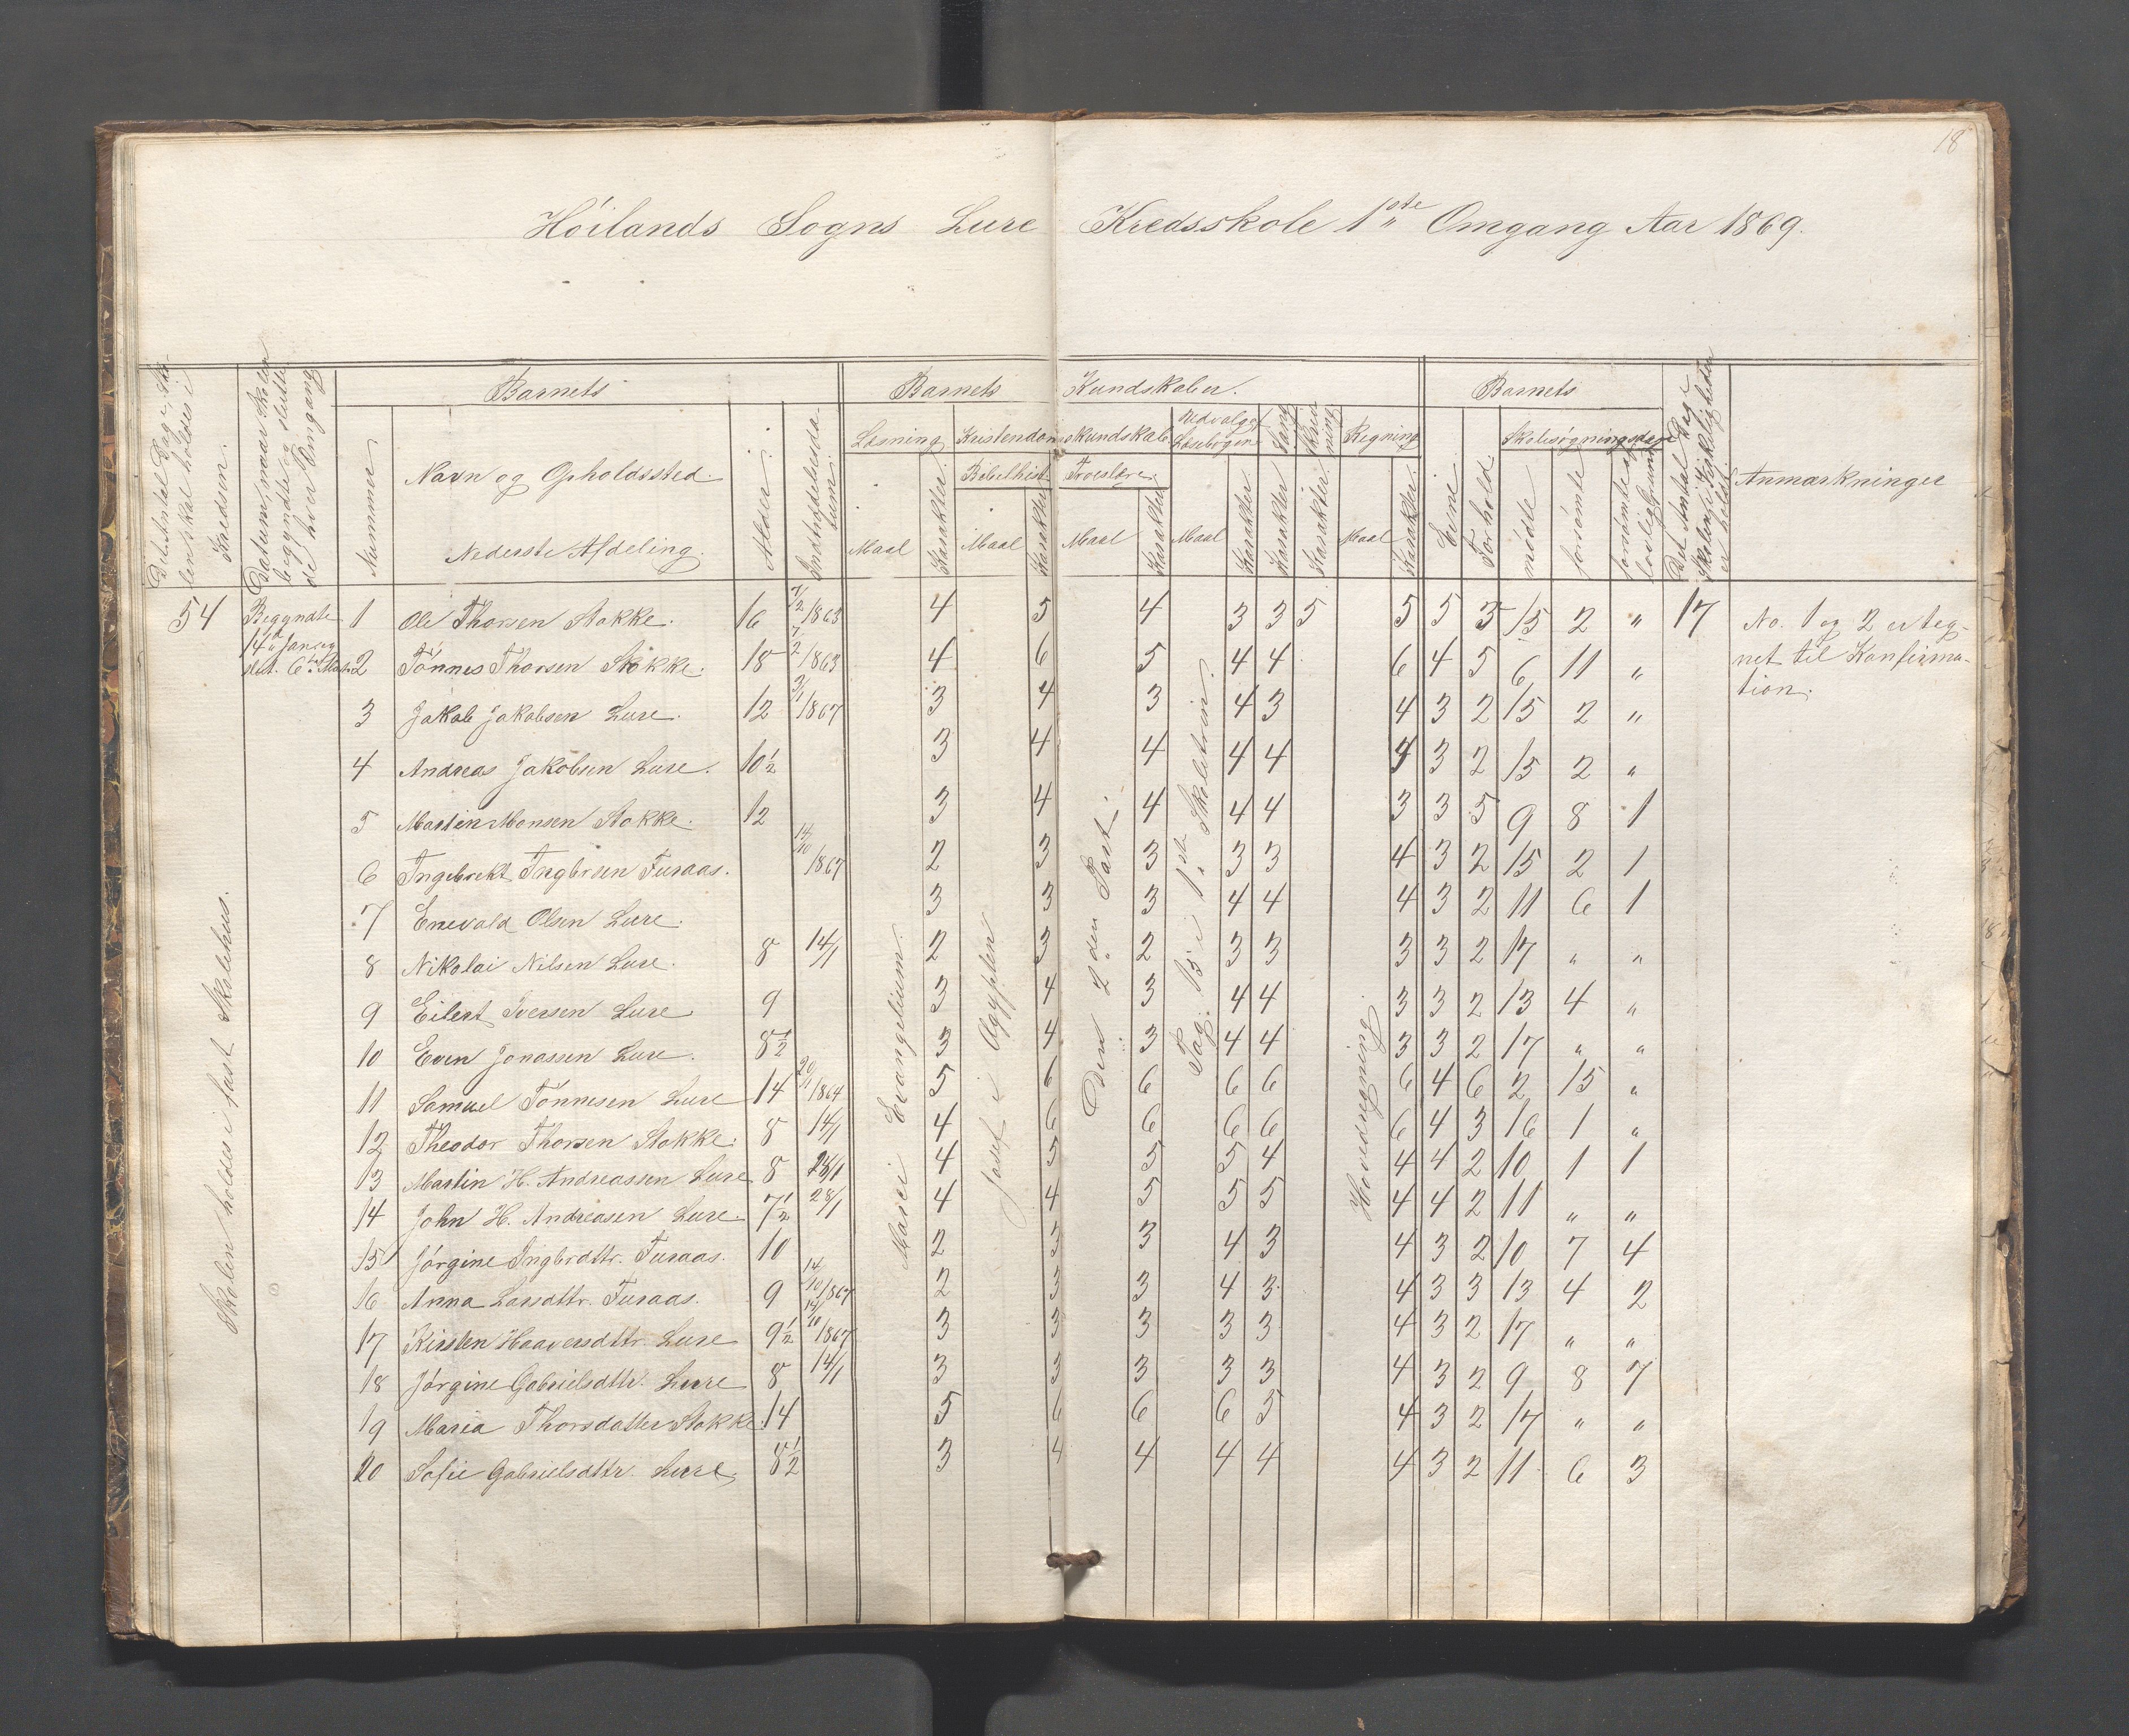 18
Höilands Sogns Lure Kredsskole 1ste Omgang Aar 1869.
Det Antal Dage, Sko-
len skal holdes i
Kredsen.
Datum, naar Skolen
begyndte og sluttede
hver Omgang
Barnets
Nummer
Navn og Opholdssted.
Nederste Afdeling.
Alder.
Indtrædelsesda-
tum.
Barnets Kundskaber.
Læsning
Maal
Karakter.
Kristendomskundskab
Bibelhist.
Maal
Karakter
Troeslære.
Maal
Karakter
Udvalget Læsebogen
Maal
Karakter
Sang
Karakter
Skriv-
ning
Karakter.
Regning
Maal
Karakter.
Barnets
Evne
Forhold
Skolesøgningsdage
mödte
forsömte
forsömte af
lovlig grund
Det Antal Dage
Skolen i Virkeligheden
er holdt
Anmærkninger
54 Begyndte 1 Ole Thorsen Stokke. 16 7/2 1863 4 5 4 3 3 5 5 5 3 15 2 " 17 No. 1 og 2 er teg-
14de Jan. og
slut. 6te Mars. 2 Tönnes Thorsen Stokke. 18 7/2 1863 4 6 5 4 4 6 4 5 6 11 " net til Konfirma-
tion.
3 Jakob Jakobsen Lure. 12 3/1 1867 3 4 3 4 3 4 3 2 15 2 "
4 Andreas Jakobsen Lure. 10½ 3 4 4 4 4 4 3 2 15 2 "
5 Martin Monsen Stokke. 12 3 4 4 4 4 3 3 5 9 8 1
6 Ingebrekt Ingbrsen Furaas. 14/10 1867 2 3 3 3 3 4 3 2 15 2 1
7 Enevald Olsen Lure. 3 3 3 4 4 4 3 2 11 6 1
8 Nikolai Nilsen Lure. 8 14/1 2 3 2 3 3 3 3 2 17 " "
9 Eilert Iversen Lure 9 3 4 3 4 4 3 3 2 13 4 "
10 Even Jonassen Lure. 8½ 3 4 3 4 4 3 3 2 17 " "
11 Samuel Tönnesen Lure 14 20/11 1864 5 6 6 6 6 6 4 6 2 15 "
12 Theodor Thorsen Stokke. 8 14/1 4 6 6 6 6 6 4 3 16 1 "
13 Martin H. Andreassen Lure 8 4 5 5 5 4 4 4 2 10 1 1
14 John H. Andreasen Lure. 7½ 28/1 4 4 5 5 5 4 4 2 11 " "
15 Jörgine Ingbrdttr. Furaas. 10 2 3 3 4 3 4 3 2 10 7 4
16 Anna Larsdttr. Furaas. 9 14/10 1867 2 3 3 4 3 4 3 3 13 4 2
17 Kirsten Haaversdttr. Lure 9½ 14/10 1867 3 3 3 3 3 4 3 2 17 " "
18 Jörgine Gabrielsdttr. Lure 8 14/1 3 3 3 3 3 4 3 2 9 8 7
19 Maria Thorsdatter Stokke. 14 5 6 6 6 5 4 3 2 17 " "
20 Sofie Gabrielsdttr. Lure. 8½ 3 4 4 4 4 4 3 2 11 6 3
Skolen holdes i fast Skolehus.
Marci Evangelium.
Josef i Ægypten
Den 2den Part.
Pag. 15 i 1ste Skoletrin.
Hovedregning